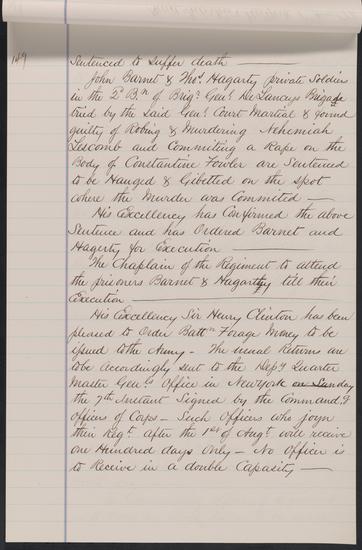 149
Sentenced to Suffer death —
John Barnet & Thos. Hagarty private Soldier
in the 2d Bn of Brigr. Genl. De Lanceys Brigade
tried by the said Genl. Court Martial & found
guilty of Robing & Murdering Nehemiah
Lescomb and Commiting a Rape on the
Body of Constantine Fowler are Sentenced
to be Hanged & Gibetted on the Spot
where the Murder was Commited —
His Excellency has Confirmed the above
Sentence and has Ordered Barnet and
Hagerty for Execution —
The Chaplain of the Regiment to attend
the prisoners Barnet & Hagartty till their
Execution —
His Excellency Sir Henry Clinton has been
pleased to Order Battn Forage Money to be
issued to the Army — The usual Returns are
to be Accordingly sent to the Depy Quarter
Master Genls Office in New York on Sunday
the 7th Instant Signed by the Command.g
Officers of Corps — Such Officers who joyn
their Regt. after the 1st of Augt will receive
One Hundred days Only — No Officer is
to Receive in a double Capasity —